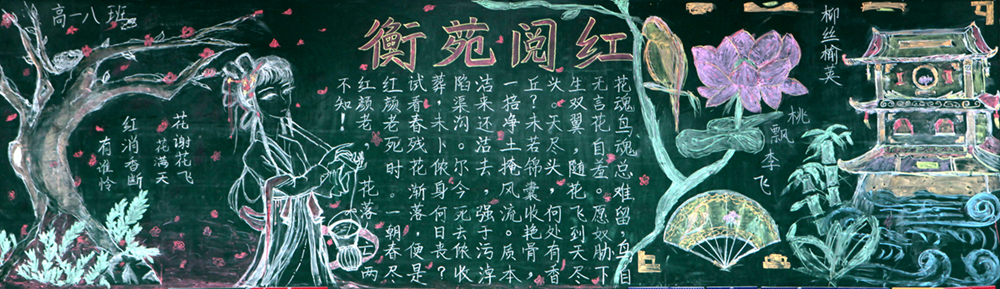 高一八班
衡苑阅红
柳丝榆荚
桃飘李飞
花魂鸟魂总难留，鸟自
无言花自羞。愿奴胁下
生双翼，随花飞到天尽
头。天尽头，何处有香
丘？未若锦囊收艳骨，
一掊净土掩风流。质本
洁来还洁去，强于污淖
陷渠沟。尔今死去侬收
葬，未卜侬身何日丧？
试看春残花渐落，便是
红颜老死时。一朝春尽
红颜老，花落人亡两
不知！
花谢花飞
花满天
红消香断
有谁怜